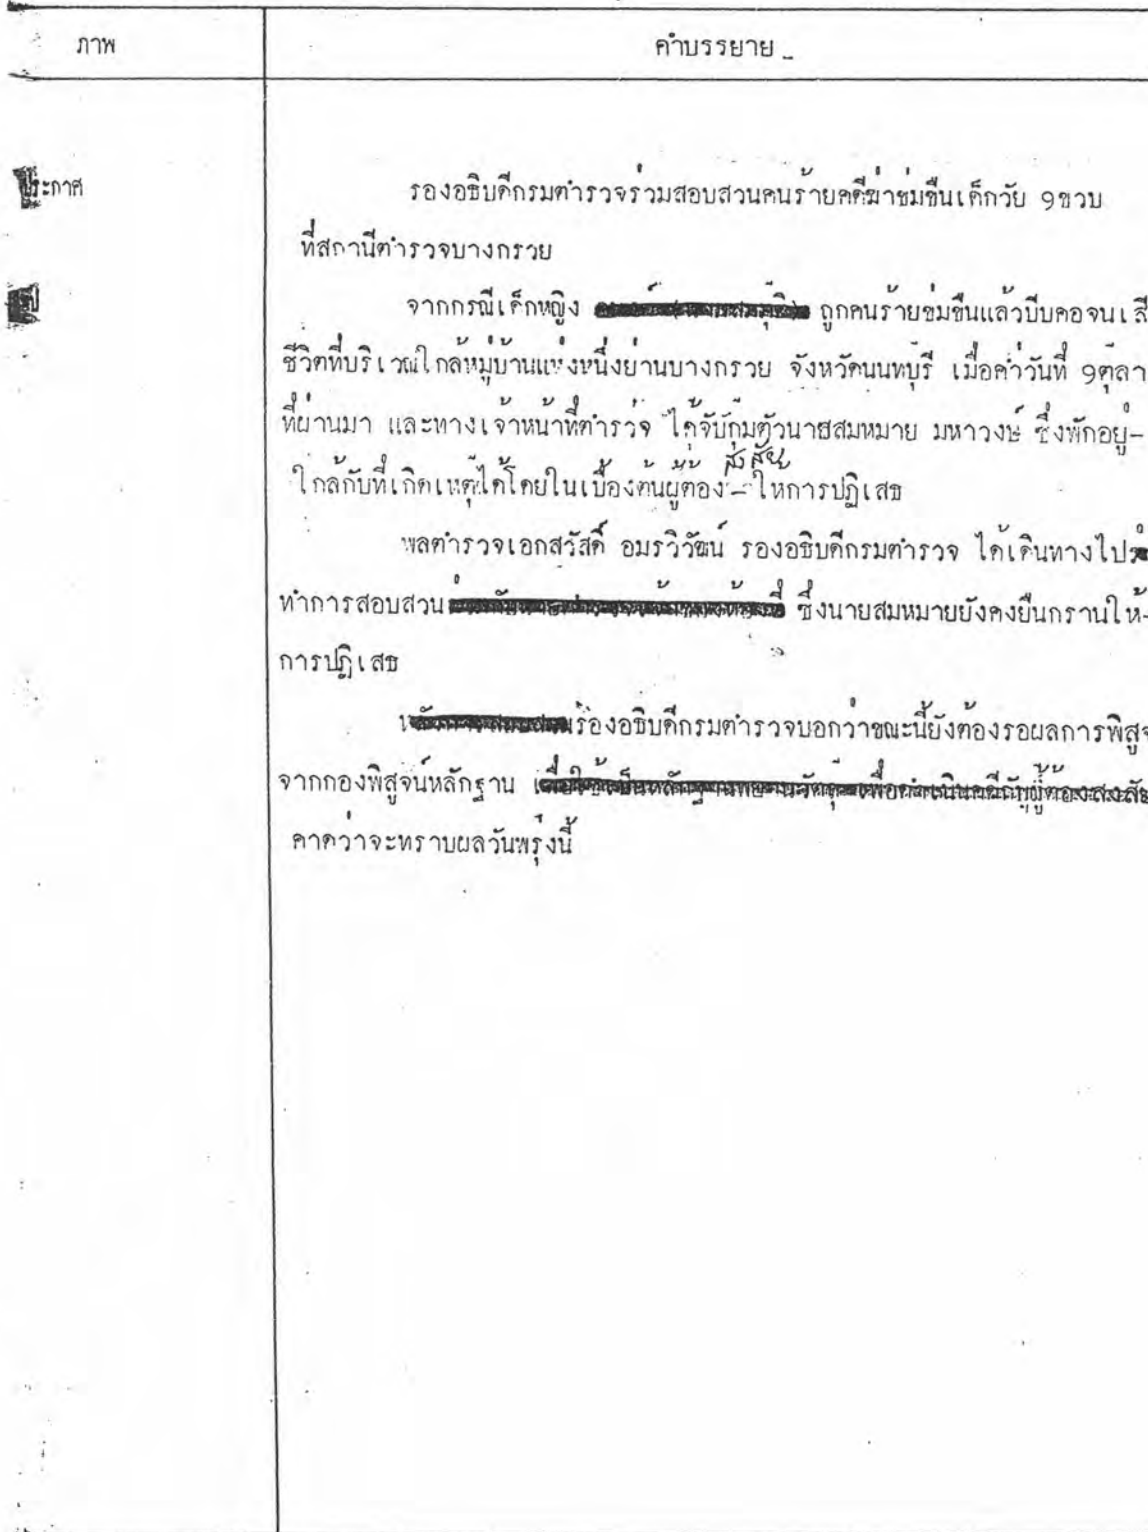 ภาพ
คำบรรยาย
ประกาศ
รองอธิบดีกรมตำรวจร่วมสอบสวนคนร้ายคดีฆ่าข่มขืนเด็กวัย 9ขวบ
ที่สถานีตำรวจบางกรวย
จากกรณีเด็กหญิง ถูกคนร้ายข่มขืนแล้วบีบคอจนเสี
ชีวิตที่บริเวณใกล้หมู่บ้านแห่งหนึ่งย่านบางกรวย จังหวัดนนทบุรี เมื่อค่ำวันที่ 9ตุลา
ที่ผ่านมา และทางเจ้าหน้าที่ตำรวจ ได้จับกุมตัวนายสมหมาย มหาวงษ์ ซึ่งพักอยู่-
สงสัย
ใกล้กับที่เกิดเหตุได้โดยในเบื้องต้นผู้ต้อง- ให้การปฏิเสธ
พลตำรวจเอกสวัสดิ์ อมรวิวัฒน์ รองอธิบดีกรมตำรวจ ได้เดินทางไป
ทำการสอบสวน ซึ่งนายสมหมายยังคงยืนกรานให้-
การปฏิเสธ
รองอธิบดีกรมตำรวจบอกว่าขณะนี้ยังต้องรอผลการพิสูจ
จากกองพิสูจน์หลักฐาน
คาดว่าจะทราบผลวันพรุ่งนี้